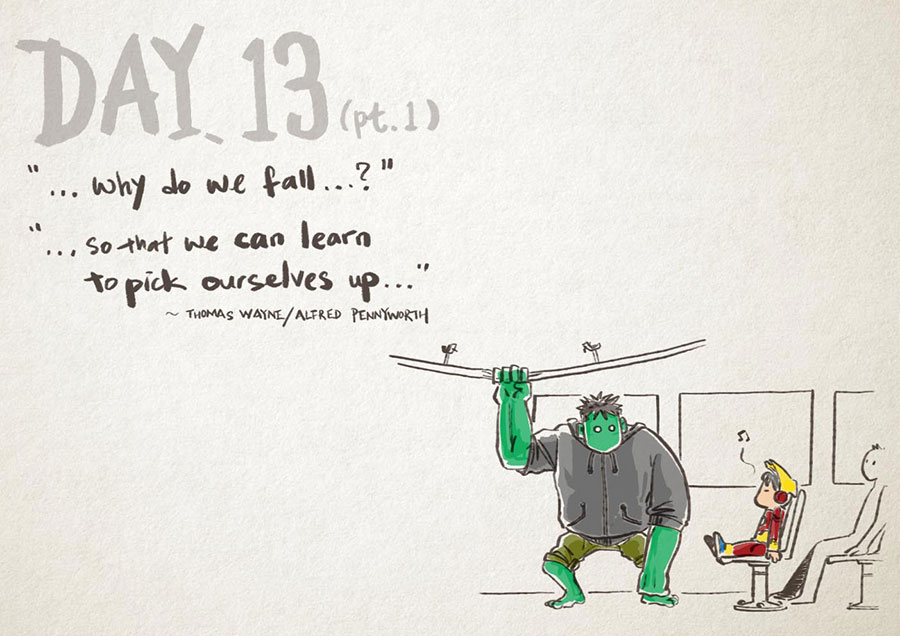 DAY. 13 (pt.1)
"... why do we fall...?"
"... so that we can learn
to pick ourselves up..."
~ THOMAS WAYNE/ALFRED PENNYWORTH